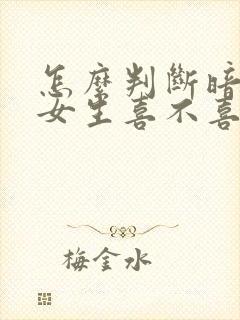 怎麼判斷暗
女生喜不喜
梅金水